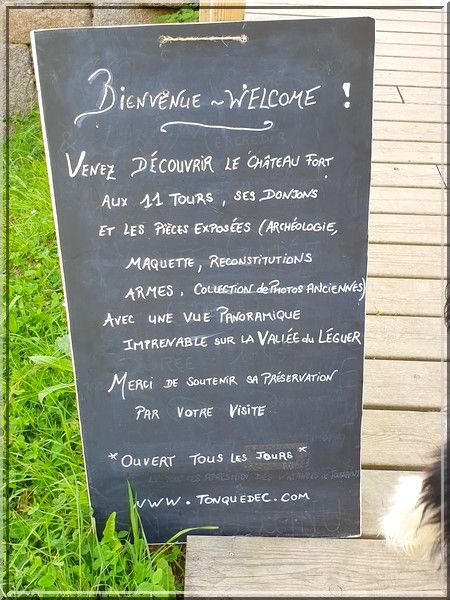 BIENVENUE ~ WELCOME !
VENEZ DÉCOUVRIR LE CHÂTEAU FORT
AUX 11 TOURS, SES DONJONS
ET LES PIÈCES EXPOSÉES (ARCHÉOLOGIE,
MAQUETTE, RECONSTITUTIONS
ARMES, COLLECTION de PHOTOS ANCIENNES)
AVEC UNE VUE PANORAMIQUE
IMPRENABLE SUR LA VALLÉE du LÉGUER
MERCI DE SOUTENIR SA PRÉSERVATION
PAR VOTRE VISITE
*OUVERT TOUS LES JOURS*
WWW.TONQUEDEC.COM